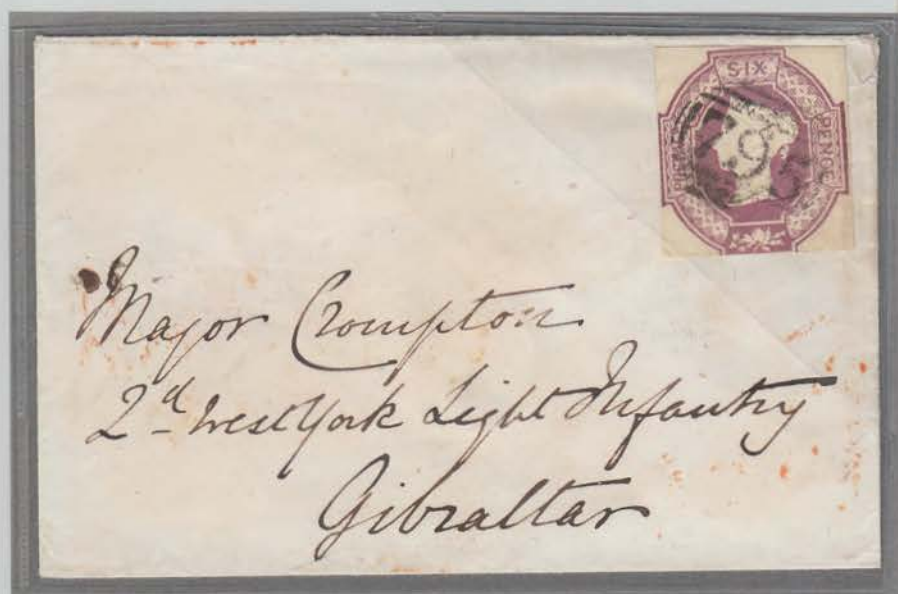 SIX
PENCE
POSTAGE
79
Major Crompton
2d West York Light Infantry
Gibraltar